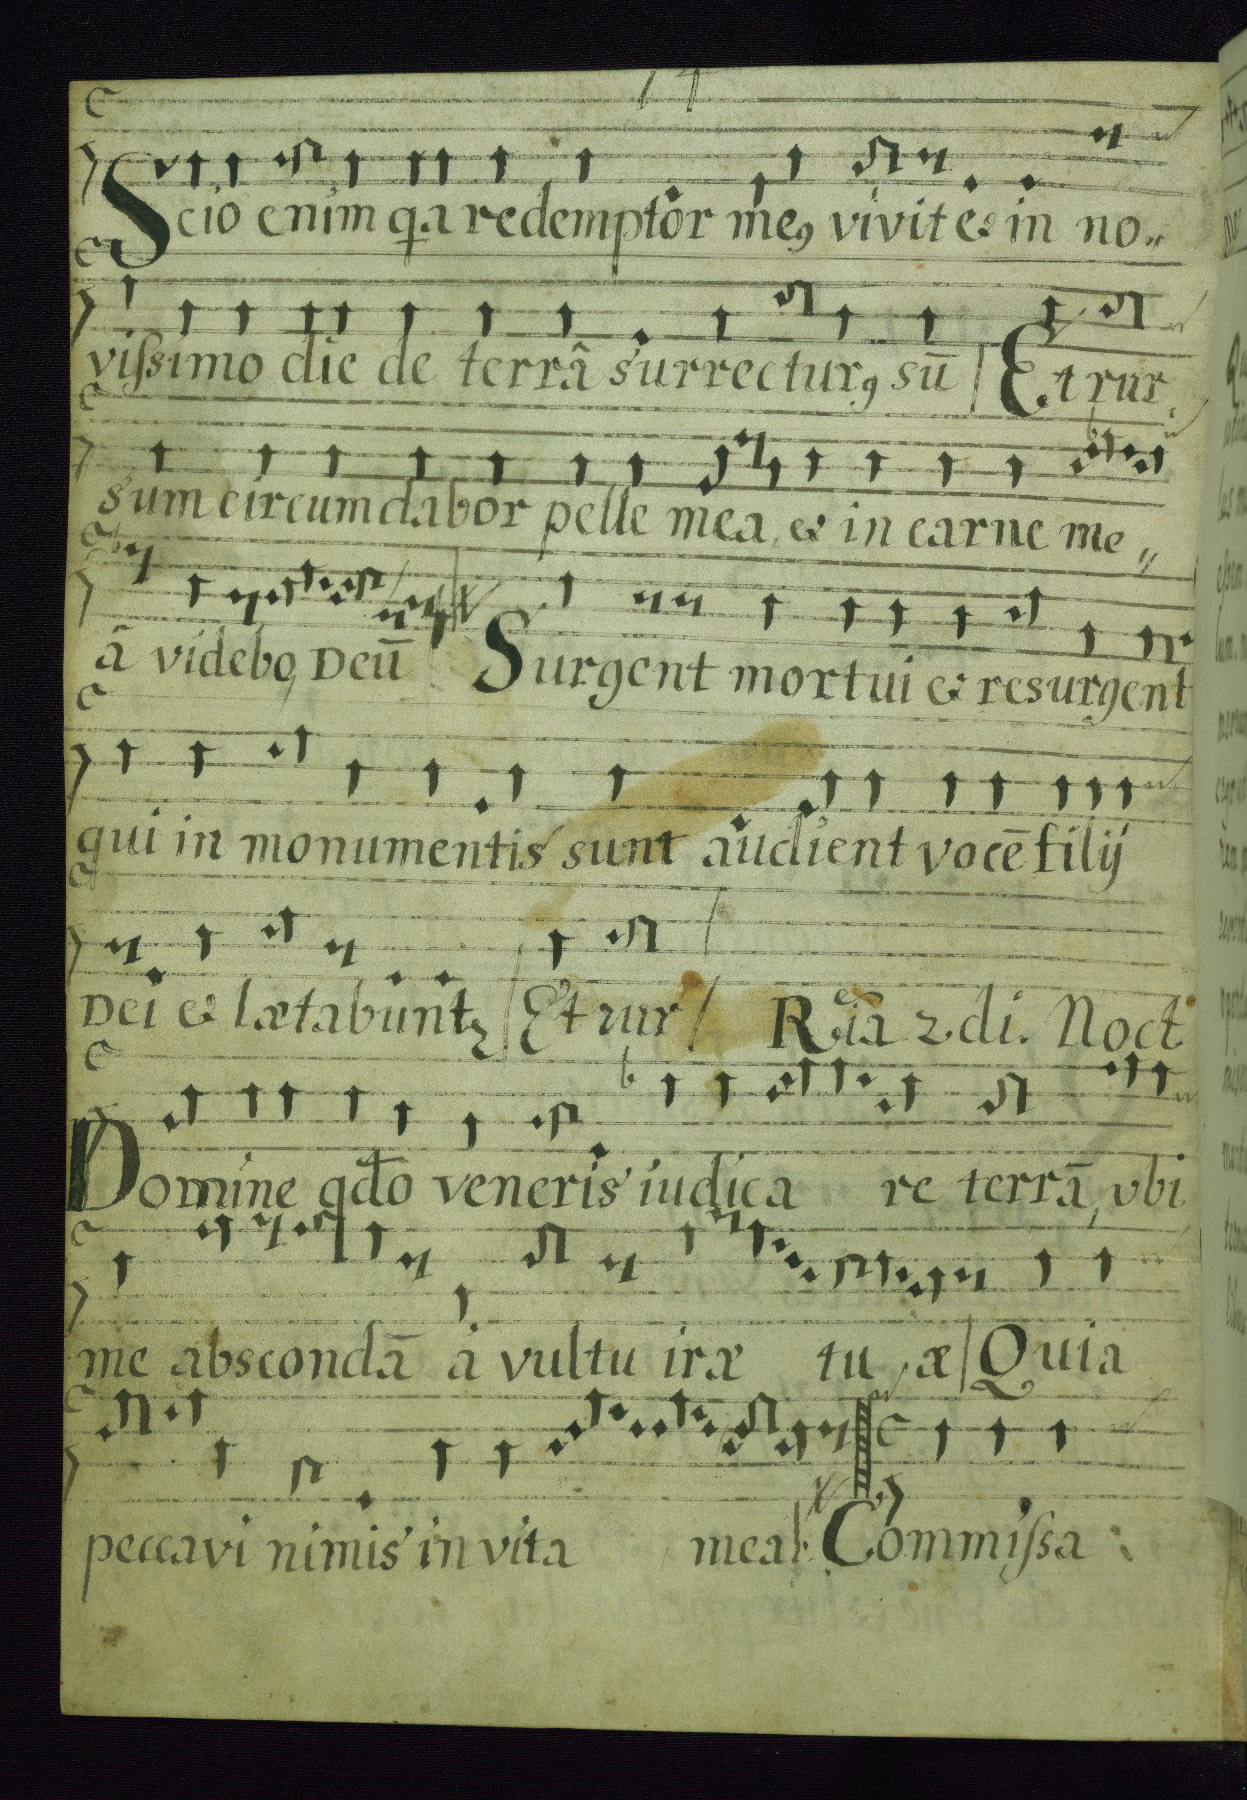 14
Scio enim qa redemptor meꝯ vivit & in no„
vissimo die de terrâ surrecturꝯ sū / Et rur
sum circumdabor pelle mea, & in carne me„
â videbo Deū Surgent mortui & resurgent
qui in monumentis sunt audient vocē filij
Dei & lætabunt / Et rur / Ria 2 di. Noct
Domine qdo veneris iudica re terrā, vbi
me abscondā á vultu iræ tu æ / Quia
peccavi nimis in vita mea Commissa :